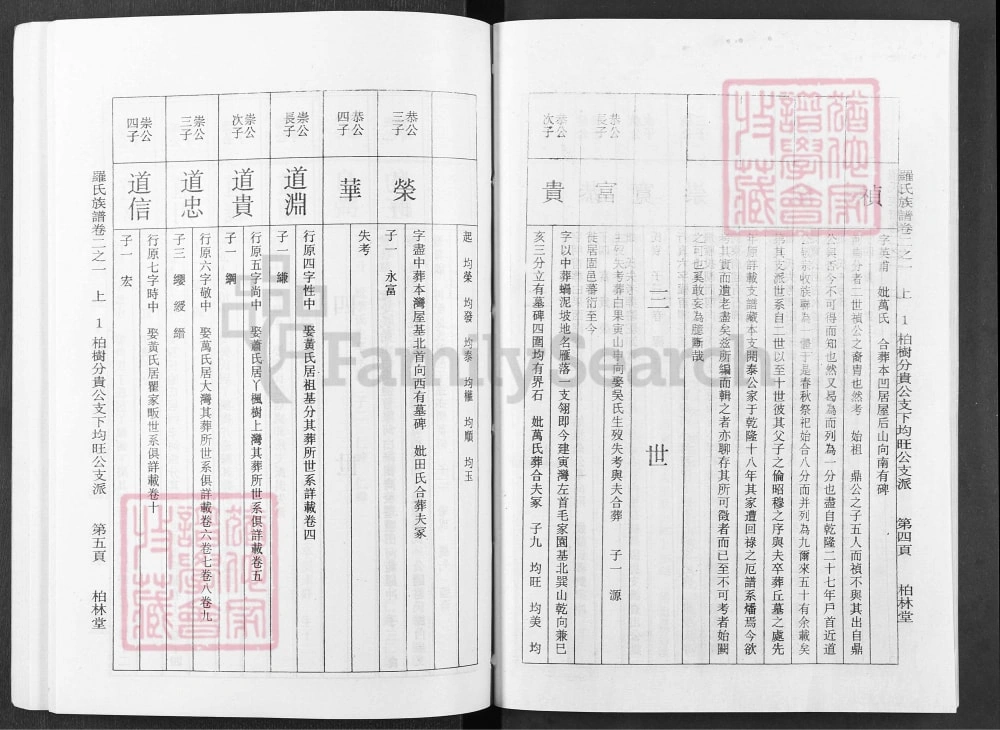 羅氏族譜卷二之一 上 1 柏樹分貴公支下均旺公支派 第四頁 柏林堂
禎
字英甫 妣萬氏 合葬本凹居屋后山向南有碑
二世禎公之裔冑也然考 始祖 鼎公之子五人而禎不與其出自鼎
不可得而知也然又曷為而列為一分也盡自乾隆二十七年戶首近道
于是春秋祭祀始合八分而并列為九爾來五十有余載矣
其支派世系自二世以至十世彼其父子之倫昭穆之序與夫卒葬丘墓之處先
年原詳載支譜藏本支開泰公家于乾隆十八年其家遭回祿之厄譜系燔焉今欲
其實而遺老盡矣茲所編而輯之者亦聊存其所可徵者而已至不可考者始闕
之可也奚敢妄為臆斷哉
三世
恭公長子
富
生歿失考葬白果寅山申向娶吳氏生歿失考與夫合葬 子一 源
徙居固邑蕃衍至今
恭公次子
貴
字以中葬螞泥坡地名雁落一支翎即今建寅灣左首毛家園基北巽山乾向兼巳
亥三分立有墓碑四圍均有界石 妣萬氏葬合夫冢 子九 均旺 均美 均
起 均榮 均發 均泰 均權 均順 均玉
恭公三子
榮
字盡中葬本灣屋基北首向西有墓碑 妣田氏合葬夫冢
子一 永富
恭公四子
華
失考
崇公長子
道淵
行原四字性中 娶黃氏居祖基分其葬所世系詳載卷四
子一 鎌
崇公次子
道貴
行原五字尚中 娶蕭氏居丫楓樹上灣其葬所世系俱詳載卷五
子一 鋼
崇公三子
道忠
行原六字敬中 娶萬氏居大灣其葬所世系俱詳載卷六卷七卷八卷九
子三 纓 綬 縉
崇公四子
道信
行原七字時中 娶黃氏居瞿家畈世系俱詳載卷十
子一 宏
羅氏族譜卷二之一 上 1 柏樹分貴公支下均旺公支派 第五頁 柏林堂
FamilySearch